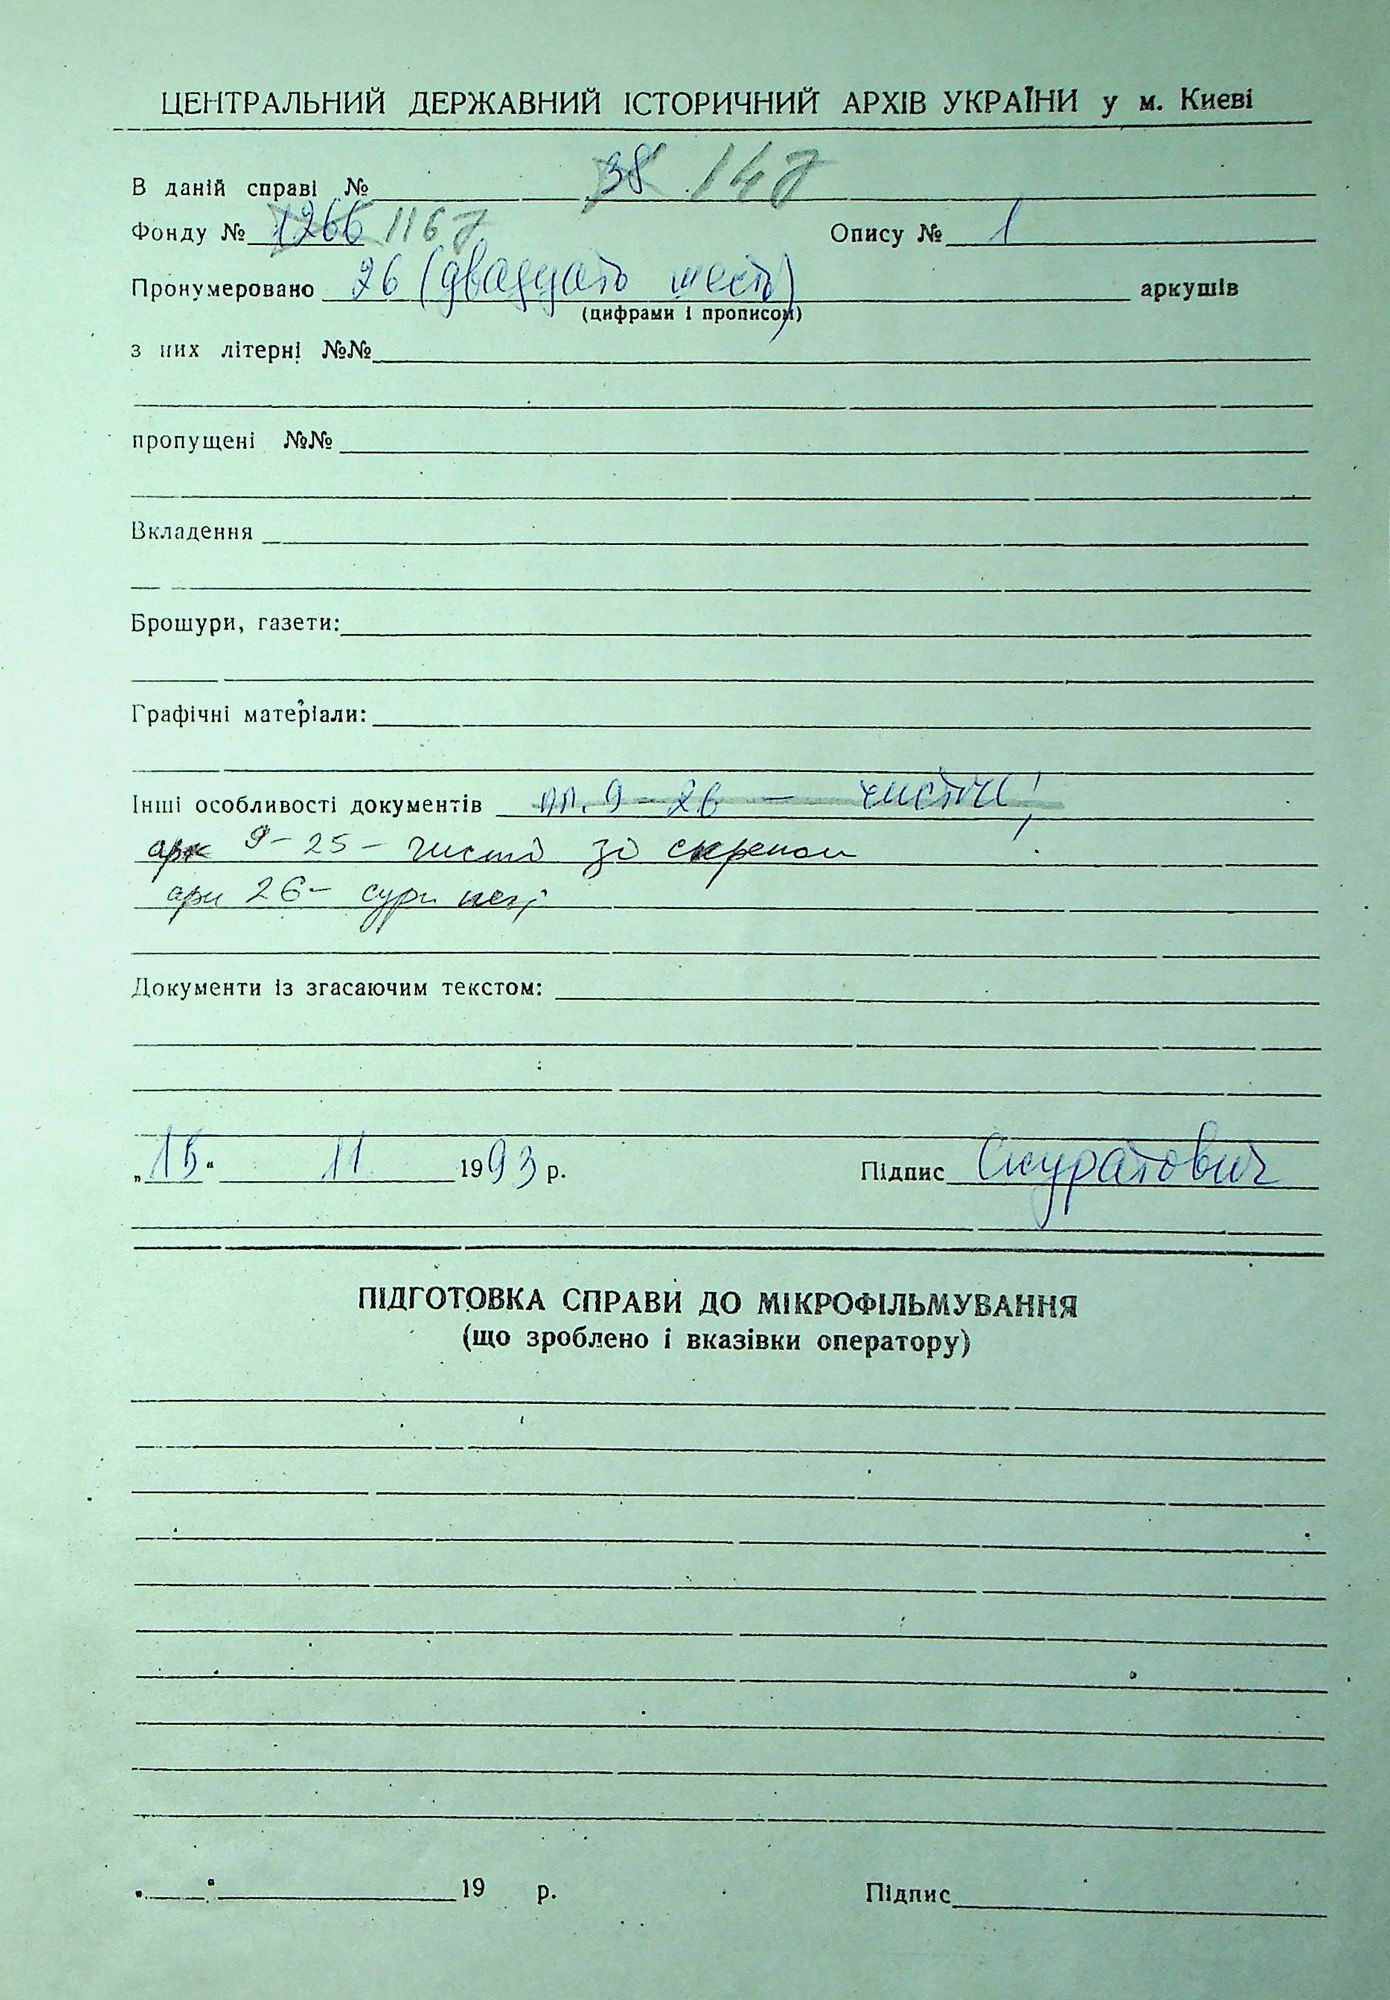 ЦЕНТРАЛЬНИЙ ДЕРЖАВНИЙ ІСТОРИЧНИЙ АРХІВ УКРАЇНИ у м. Києві
В даній справі № 38 147
Фонду № 1266 1167 Опису № 1
Пронумеровано 26 (двадцать шесть) аркушів
(цифрами і прописом)
з них літерні №№
пропущені №№
Вкладення
Брошури, газети:
Графічні матеріали:
Інші особливості документів 9-26 — чисті!
арк 9-25 - чисті зі скрепою
арк 26- сург печ.
Документи із згасаючим текстом:
„15“ 11 1993 р. Підпис Скуратович
ПІДГОТОВКА СПРАВИ ДО МІКРОФІЛЬМУВАННЯ
(що зроблено і вказівки оператору)
19 р. Підпис